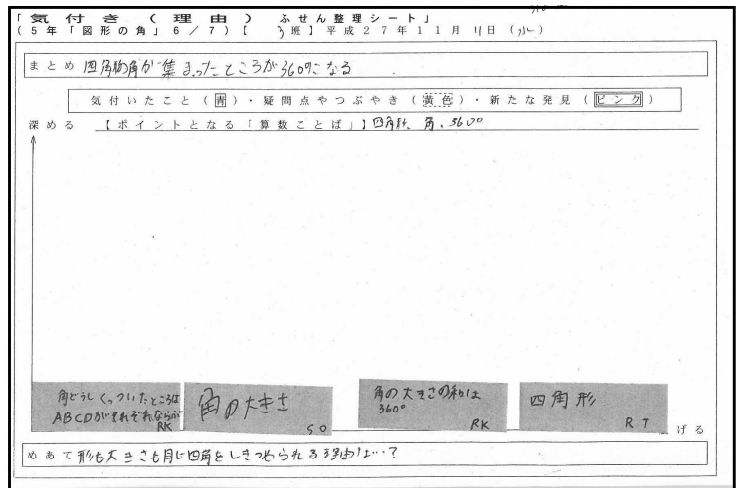 「気付き（理由） ふせん整理シート」
（5年「図形の角」6／7）【 3班】平成27年11月11日（水）
まとめ 四角形の角が集まったところが360°になる
気付いたこと（青）・疑問点やつぶやき（黄色）・新たな発見（ピンク）
深める 【ポイントとなる「算数ことば」】四角形、角、360°
角どうしくっついたところは
ABCDがそれぞれならぶ
RK
角の大きさ
SO
角の大きさの和は
360°
RK
四角形
RT
げる
めあて 形も大きさも同じ四角をしきつめられる理由は…？